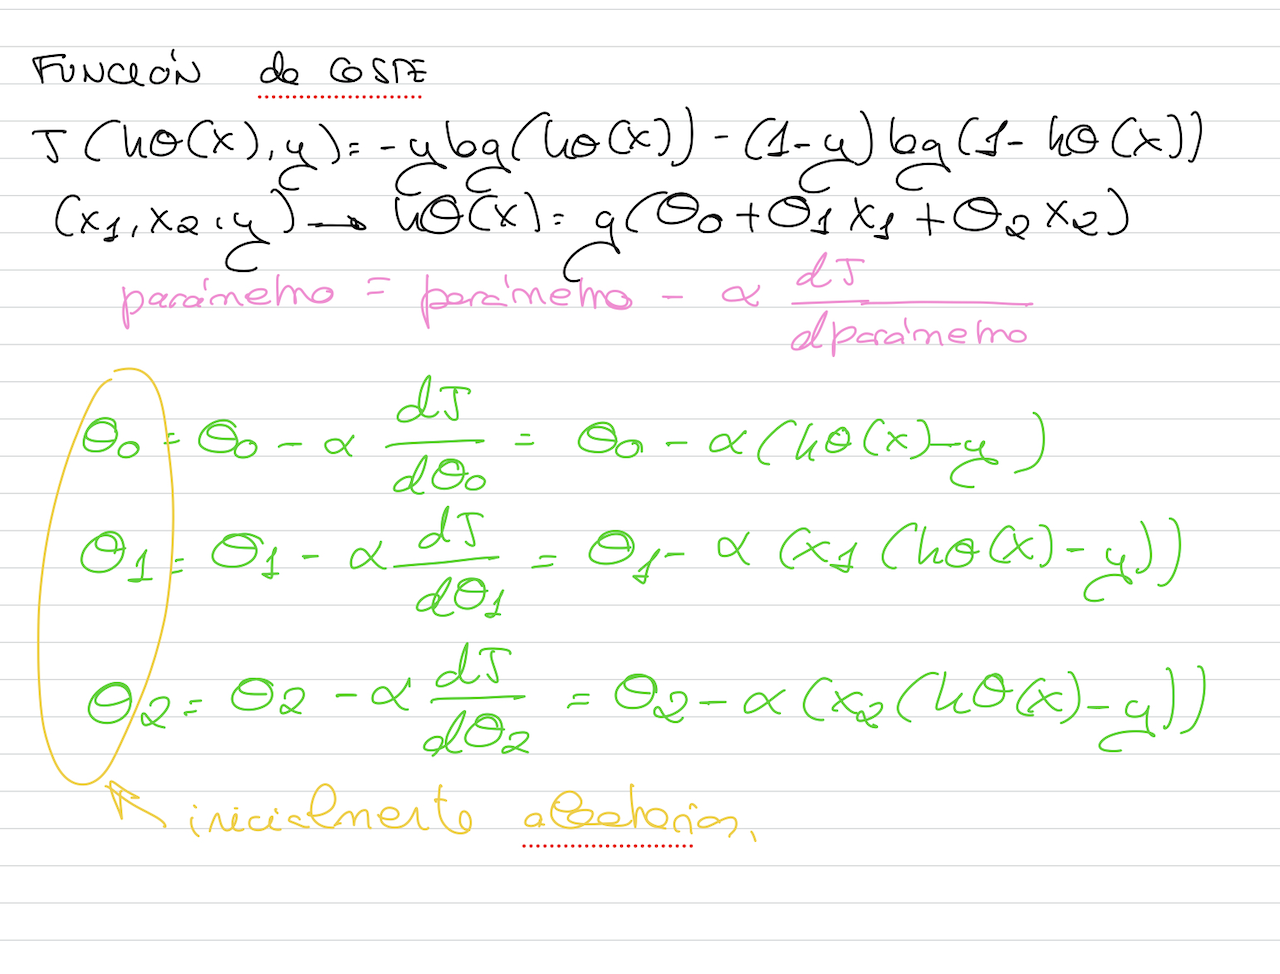 FUNCIÓN de COSTE
J(hθ(x),y)= -y log(hθ(x)) - (1-y) log(1- hθ(x))
(x1,x2,y) → hθ(x)= g(θ0+θ1x1+θ2x2)
parámetro = parámetro - α dJ/dparámetro
θ0 = θ0 - α dJ/dθ0 = θ0 - α(hθ(x)-y)
θ1 = θ1 - α dJ/dθ1 = θ1 - α(x1(hθ(x)-y))
θ2 = θ2 - α dJ/dθ2 = θ2 - α(x2(hθ(x)-y))
inicialmente aleatorios.